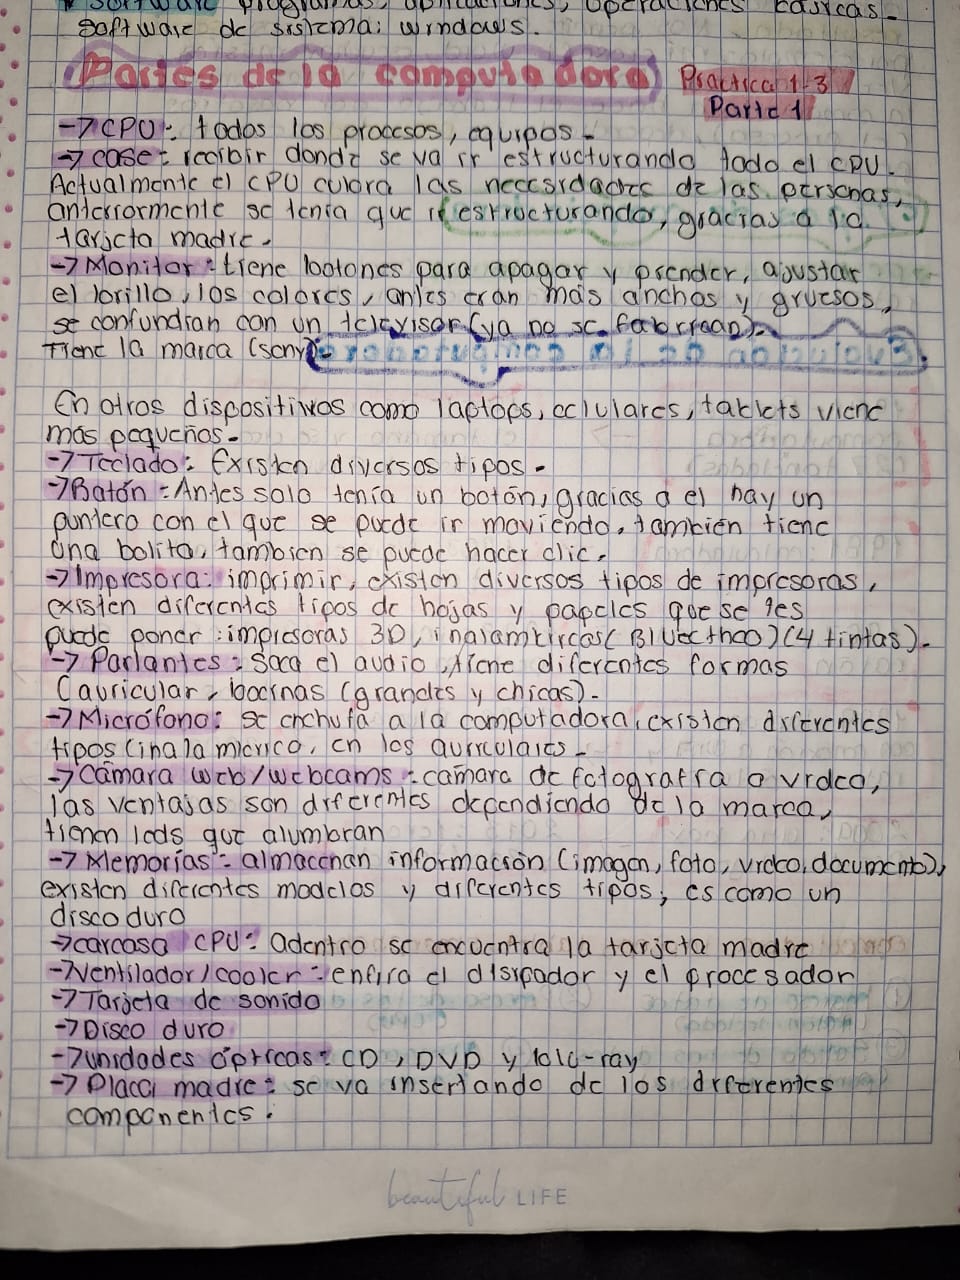 Software programas, aplicaciones, operaciones básicas.
Software de sistema: windows.
Partes de la computadora
Practica 1-3
Parte 1
→ CPU: todos los procesos, equipos.
→ case: recibir donde se va ir estructurando todo el CPU.
Actualmente el CPU cubra las necesidades de las personas,
anteriormente se tenía que ir estructurando, gracias a la
tarjeta madre.
→ Monitor: tiene botones para apagar y prender, ajustar
el brillo, los colores, antes eran más anchos y gruesos,
se confundían con un televisor (ya no se fabrican).
Tiene la marca (sony).
En otros dispositivos como laptops, celulares, tablets viene
más pequeños.
→ Teclado: Existen diversos tipos.
→ Batón: Antes solo tenía un botón, gracias a el hay un
puntero con el que se puede ir moviendo, también tiene
una bolita, tambien se puede hacer clic.
→ Impresora: imprimir, existen diversos tipos de impresoras,
existen diferentes tipos de hojas y papeles que se les
puede poner: impresoras 3D, (4 tintas).
→ Parlantes: Saca el audio, tiene diferentes formas
(auricular, bocinas (grandes y chicas).
→ Micrófono: se enchufa a la computadora, existen diferentes
tipos en los auriculares.
→ Cámara web/webcams: camara de fotografía o video,
las ventajas son diferentes dependiendo de la marca,
tienen leds que alumbran
→ Memorías: almacenan información (imagen, foto, video, documento),
existen diferentes modelos y diferentes tipos, es como un
disco duro
→ carcasa CPU: Adentro se encuentra la tarjeta madre
→ Ventilador/cooler: enfira el disipador y el procesador
→ Tarjeta de sonido
→ Disco duro
→ unidades ópticas: CD, DVD y blu-ray
→ Placa madre: se va insertando de los diferentes
componentes.
beautiful LIFE